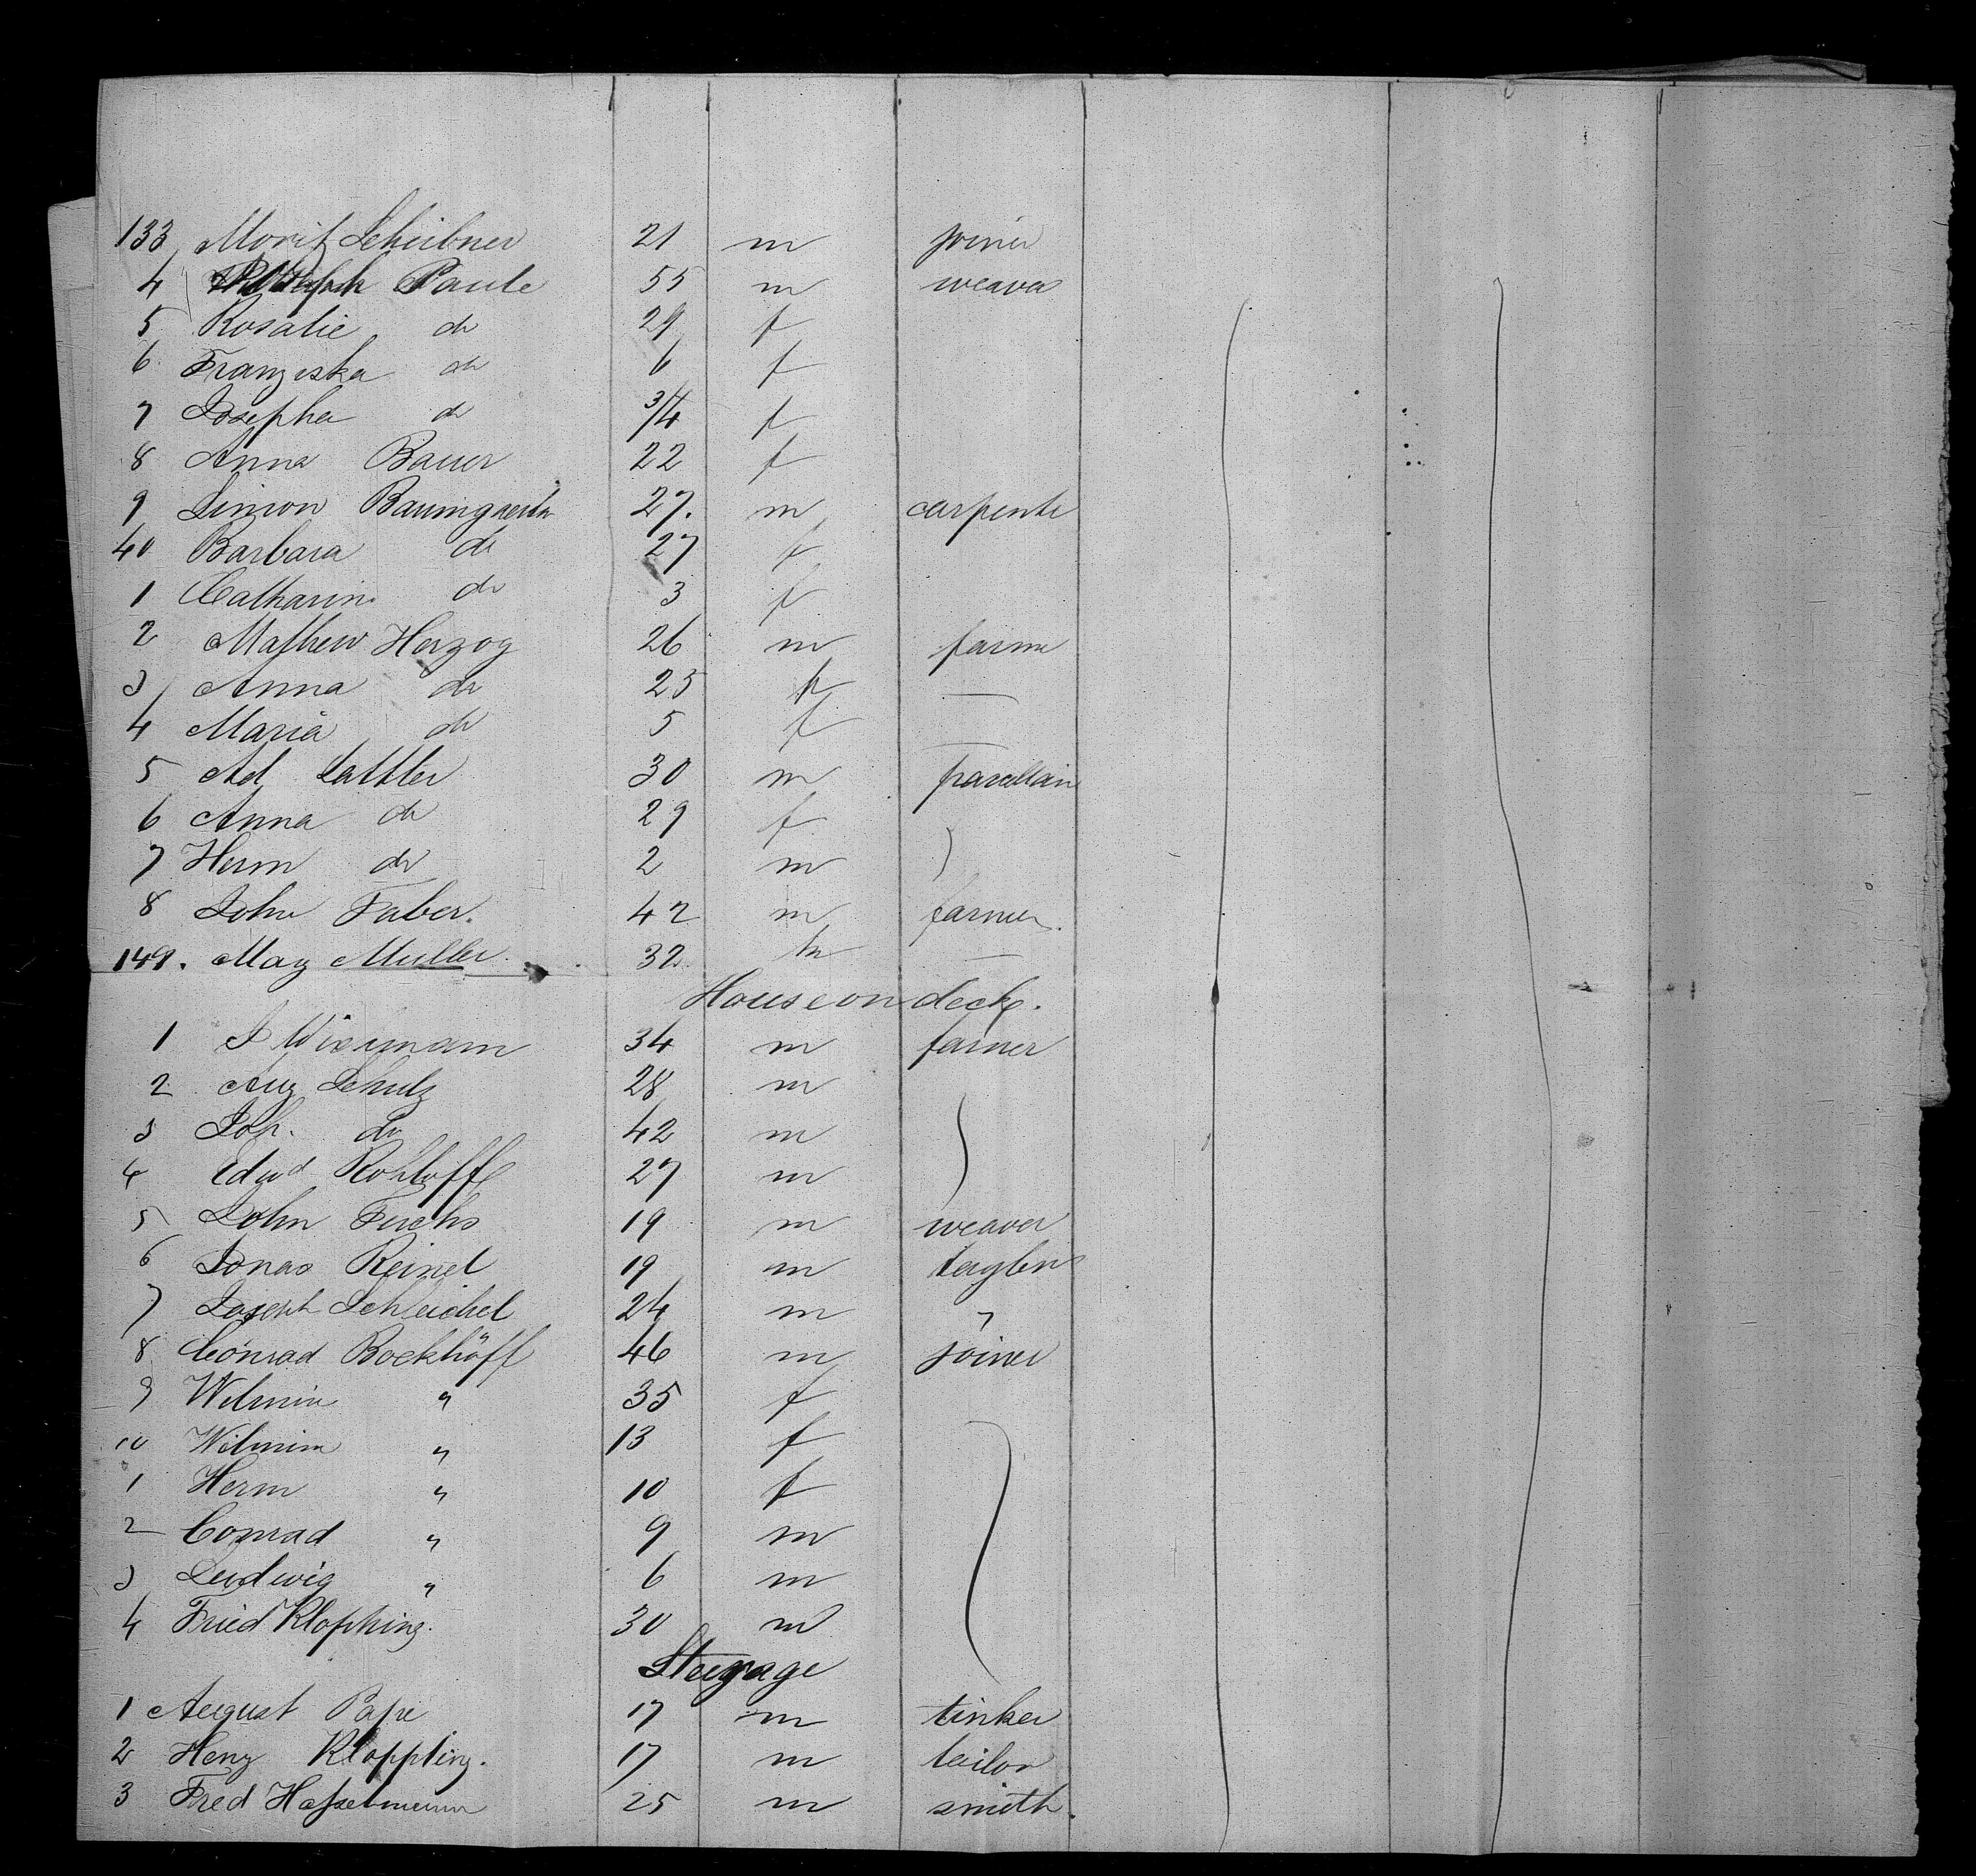 133 Moritz Scheibner 21 m joiner
4 Paule 55 m weaver
5 Rosalie do 29 f
6 Franziska do 6 f
7 Josepha do 3/4 f
8 Anna Bauer 22 f
9 Simon Baumgaertn 27. m carpente
40 Barbara do 27 f
1 Catharin do 3 f
2 Mathew Herzog 26 m farme
3 Anna do 25 f —
4 Maria do 5 f —
5 Ad Sattler 30 m
6 Anna do 29 f
7 Herm do 2 m
8 John Faber. 42 m farmer.
149. May Muller. 32 m —
House on deck.
1 J Wiesmann 34 m farmer
2 Aug Schulz 28 m
3 Joh. do 42 m
4 Edwd Rohloff 27 m
5 John Fuchs 19 m weaver
6 Jonas Reinel 19 m
7 Joseph Schleichel 24 m "
8 Conrad Bockhöff 46 m joiner
9 Wilmin " 35 f
10 Wilmin " 13 f
1 Herm " 10 f
2 Conrad " 9 m
3 Ludwig " 6 m
4 Fried Klopping. 30 m
Steerage
1 August Pape 17 m tinker
2 Heny Kloppling. 17 m tailor
3 Fred Hasselmann 25 m smith.